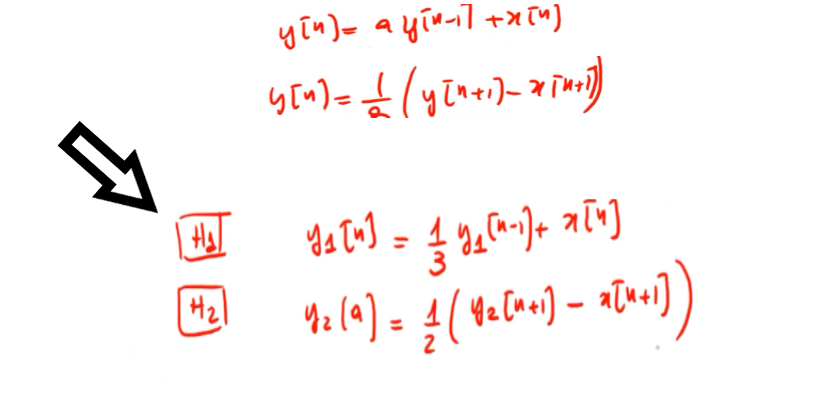 y[n] = a y[n-1] + x[n]
y[n] = 1/a (y[n+1) - x[n+1])
H1 y1[n] = 1/3 y1[n-1] + x[n]
H2 y2[a] = 1/2 (y2[n+1] - x[n+1])